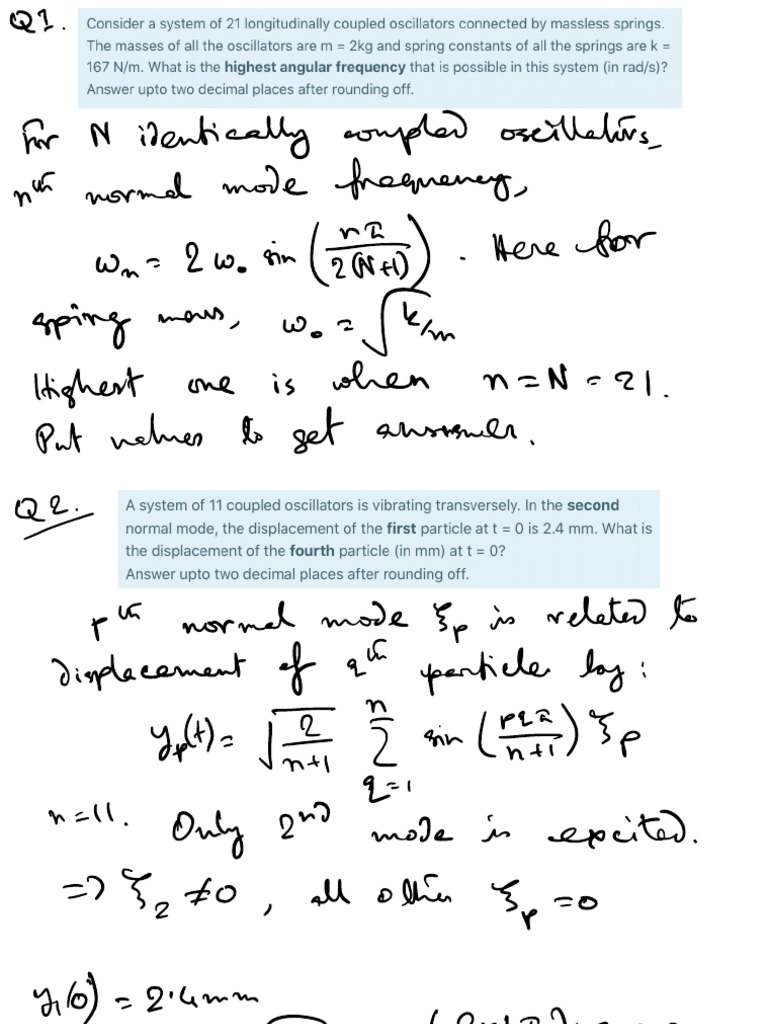 Q1.
Consider a system of 21 longitudinally coupled oscillators connected by massless springs.
The masses of all the oscillators are m = 2kg and spring constants of all the springs are k =
167 N/m. What is the highest angular frequency that is possible in this system (in rad/s)?
Answer upto two decimal places after rounding off.
For N identically coupled oscillators,
nth normal mode frequency,
ωn = 2 ω₀ sin (nπ / 2(N+1)). Here for
spring mass, ω₀ = √k/m
Highest one is when n = N = 21.
Put values to get answer.
Q2.
A system of 11 coupled oscillators is vibrating transversely. In the second
normal mode, the displacement of the first particle at t = 0 is 2.4 mm. What is
the displacement of the fourth particle (in mm) at t = 0?
Answer upto two decimal places after rounding off.
pth normal mode ξp is related to
displacement of qth particle by:
yp(t) = √(2/(n+1)) Σ_{q=1}^{n} sin (pqπ/(n+1)) ξp
n = 11. Only 2nd mode is excited.
=> ξ₂ ≠ 0, all other ξp = 0
y₁(0) = 2.4mm